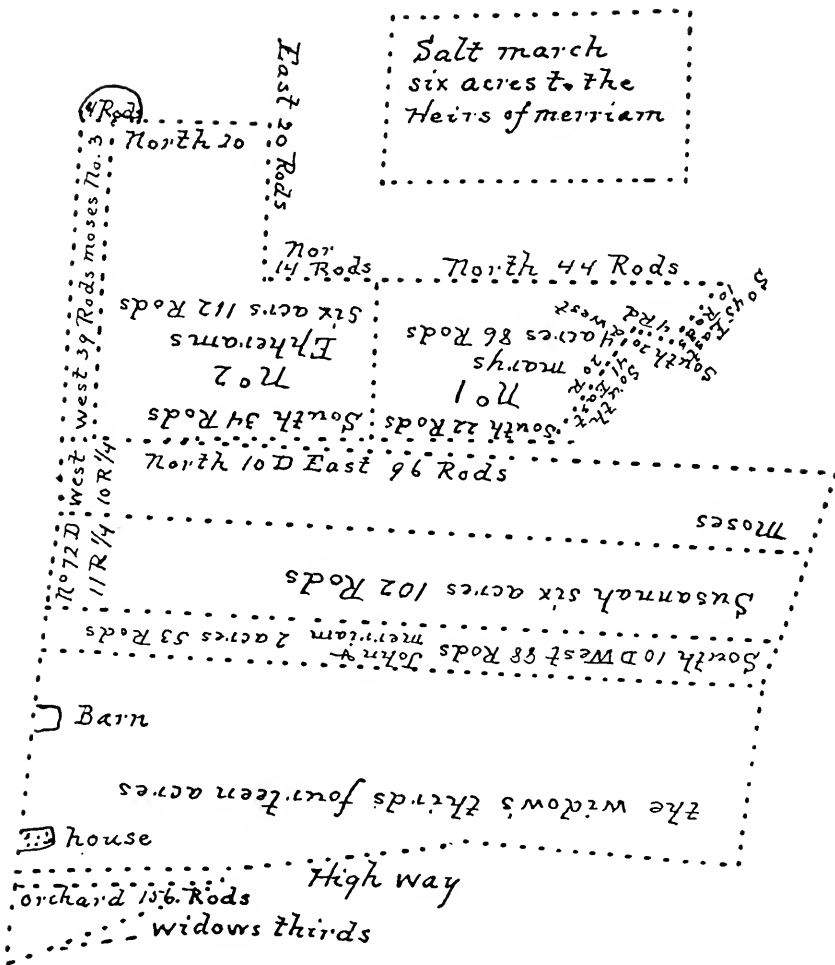 Salt march
six acres t. the
Heirs of merriam
East 20 Rods
4 Rods
North 20
west 39 Rods moses No. 3
Nor
14 Rods
North 44 Rods
So 45 East
10 Rods
South 20
4 Rd
d west
South
41 East
20 R
South 34 Rods
No 2
Epherams
Six acrs 112 Rods
South 22 Rods
No 1
marys
4 acres 86 Rods
North 10 D East 96 Rods
No 72 D West
10 R 1/4
11 R 1/4
Moses
Susannah six acres 102 Rods
South 10 D West 88 Rods John &
merriam 2 acres 53 Rods
Barn
the widow's thirds fourteen acres
house
High way
orchard 156. Rods
widows thirds